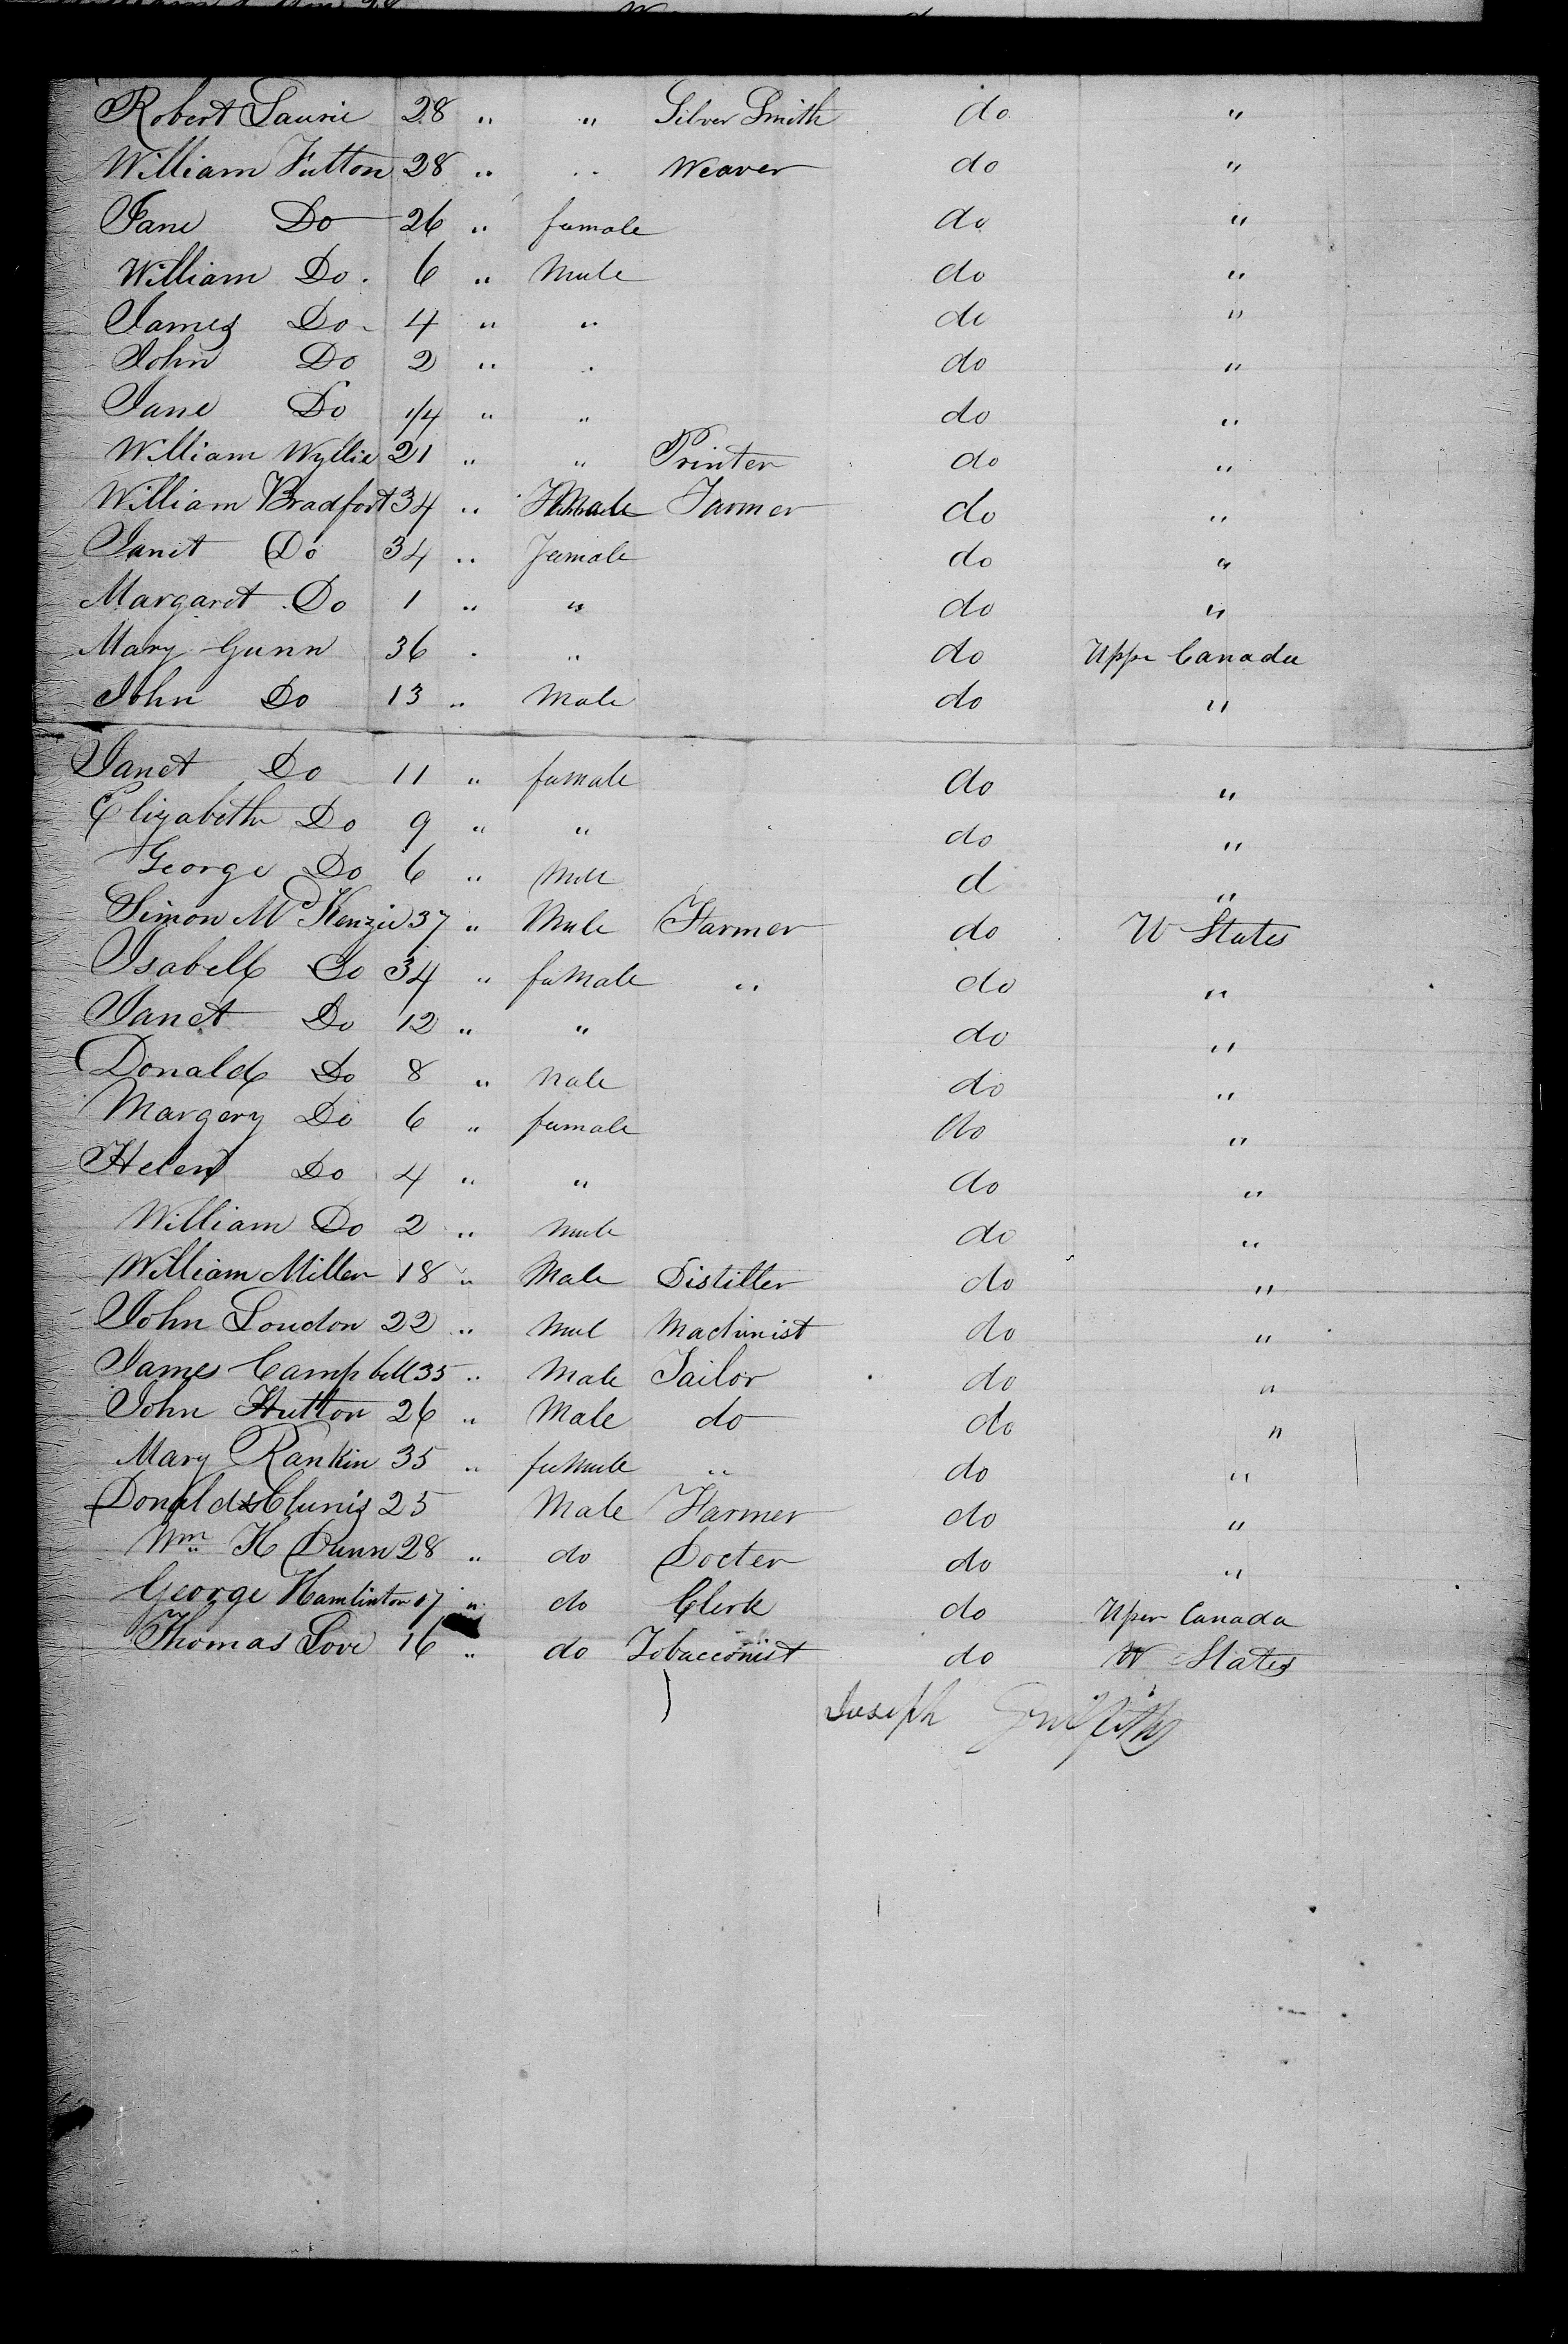 Robert Laurie 28 " " Silver Smith do "
William Fulton 28 " " Weaver do "
Jane Do 26 " female do "
William Do. 6 " Male do "
James Do 4 " " do "
John Do 2 " " do "
Jane Do 1/4 " " do "
William Wyllie 21 " " Printer do "
William Bradfort 34 " Male Farmer do "
Janet Do 34 " Female do "
Margaret Do 1 " " do "
Mary Gunn 36 " " do Upper Canada
John Do 13 " Male do "
Janet Do 11 " female do "
Elizabeth Do 9 " " do "
George Do 6 " Male d "
Simon McKenzie 37 " Male Farmer do U States
Isabell Do 34 " female " do "
Janet Do 12 " " do "
Donald Do 8 " Male do "
Margery Do 6 " female do "
Helen Do 4 " " do "
William Do 2 " Male do "
William Miller 18 " Male Distiller do "
John Loudon 22 " Male Machinist do "
James Campbell 35 " Male Tailor do "
John Hutton 26 " Male do do "
Mary Rankin 35 " female " do "
Donald Clunis 25 Male Farmer do "
Wm H Dunn 28 " do Docter do "
George Hamlinton 17 " do Clerk do Uper Canada
Thomas Love 16 " do Tobacconist do U States
Joseph Griffiths